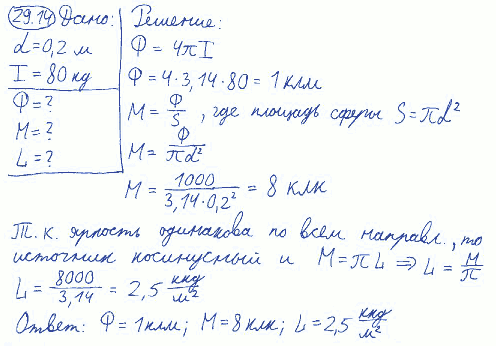 29.14 Дано:
d=0,2 м
I=80 кд
Φ=?
M=?
L=?
Решение:
Φ=4πI
Φ=4·3,14·80=1клм
M=Φ/S, где площадь сферы S=πd²
M=Φ/πd²
M=1000/3,14·0,2²=8 клк
Т.к. яркость одинакова по всем направл., то
источник косинусный и M=πL⇒L=M/π
L=8000/3,14=2,5 ккд/м²
Ответ: Φ=1клм; M=8клк; L=2,5 ккд/м²